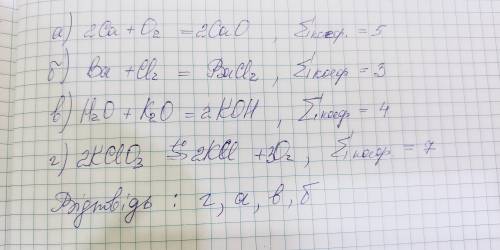 а) 2Ca + O₂ = 2CaO , Σкоеф. = 5
б) Ba + Cl₂ = BaCl₂ , Σкоеф = 3
в) H₂O + K₂O = 2KOH , Σкоеф = 4
г) 2KClO₃ ⇆ 2KCl + 3O₂ , Σкоеф = 7
Відповідь : г, а, в, б